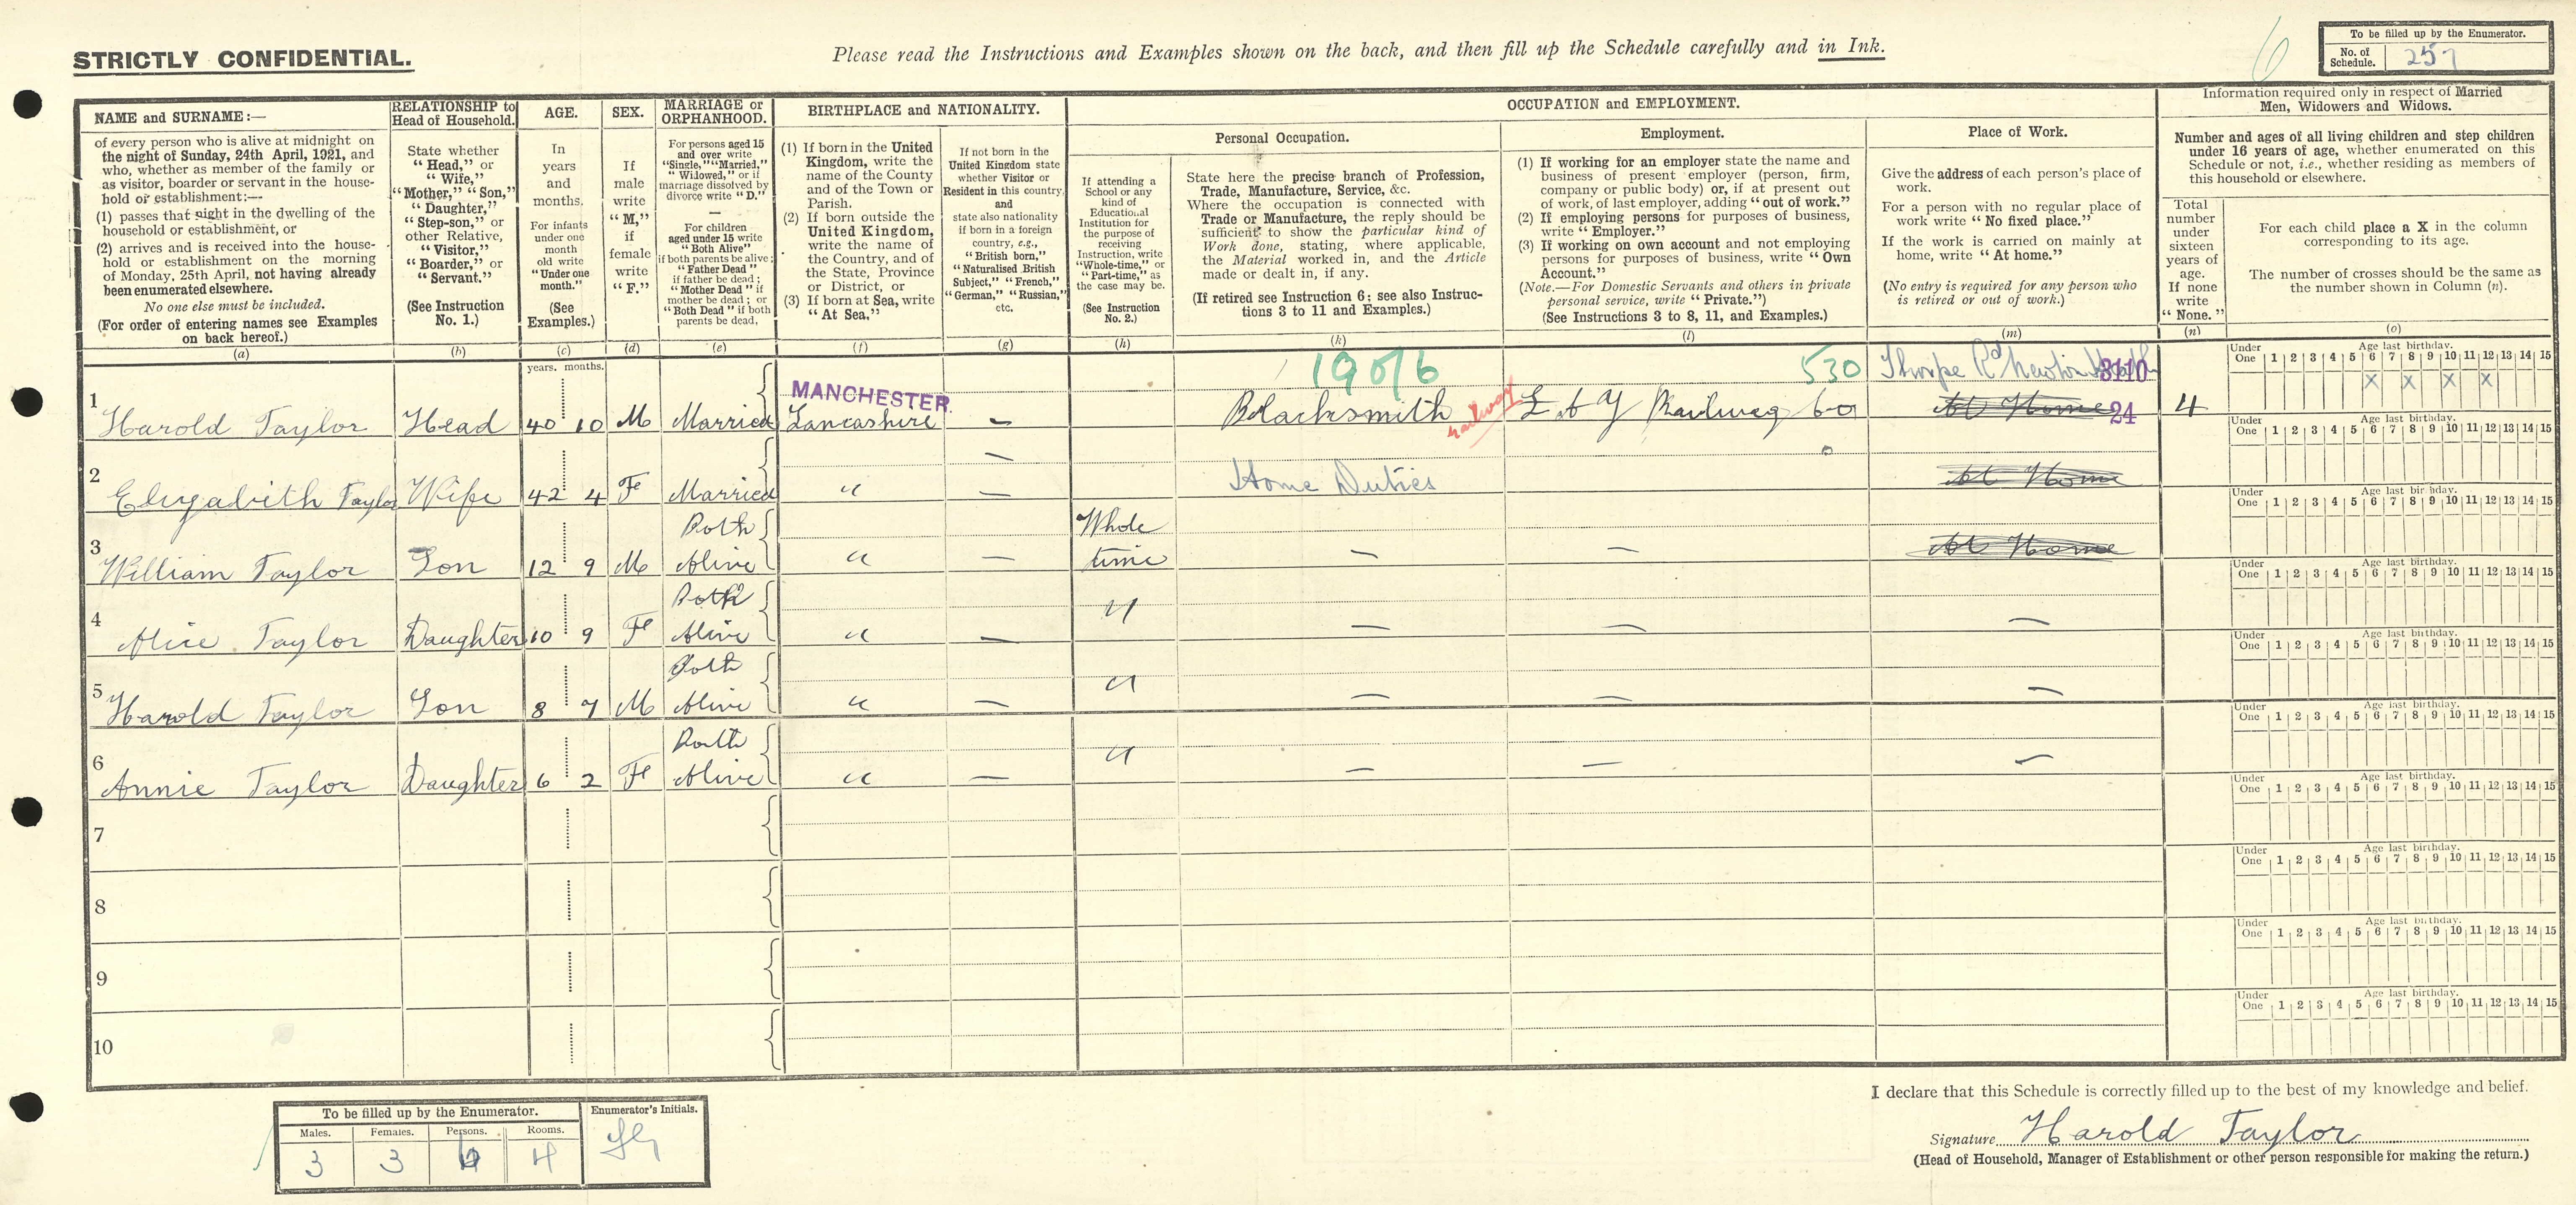 STRICTLY CONFIDENTIAL.
Please read the Instructions and Examples shown on the back, and then fill up the Schedule carefully and in Ink.
6
To be filled up by the Enumerator.
No. of Schedule. 257
NAME and SURNAME:—
of every person who is alive at midnight on
the night of Sunday, 24th April, 1921, and
who, whether as member of the family or
as visitor, boarder or servant in the house-
hold or establishment:—
(1) passes that night in the dwelling of the
household or establishment, or
(2) arrives and is received into the house-
hold or establishment on the morning
of Monday, 25th April, not having already
been enumerated elsewhere.
No one else must be included.
(For order of entering names see Examples
on back hereof.)
(a)
RELATIONSHIP to
Head of Household.
State whether
“Head,” or
“Wife,”
“Mother,” “Son,”
“Daughter,”
“Step-son,” or
other Relative,
“Visitor,”
“Boarder,” or
“Servant.”
(See Instruction
No. 1.)
(b)
AGE.
In
years
and
months.
For infants
under one
month
old write
“Under one
month.”
(See
Examples.)
(c)
SEX.
If
male
write
“M,”
if
female
write
“F.”
(d)
MARRIAGE or
ORPHANHOOD.
For persons aged 15
and over write
“Single,” “Married,”
“Widowed,” or if
marriage dissolved by
divorce write “D.”
—
For children
aged under 15 write
“Both Alive”
if both parents be alive;
“Father Dead”
if father be dead;
“Mother Dead” if
mother be dead; or
“Both Dead” if both
parents be dead.
(e)
BIRTHPLACE and NATIONALITY.
(1) If born in the United
Kingdom, write the
name of the County
and of the Town or
Parish.
(2) If born outside the
United Kingdom,
write the name of
the Country, and of
the State, Province
or District, or
(3) If born at Sea, write
“At Sea.”
(f)
If not born in the
United Kingdom state
whether Visitor or
Resident in this country,
and
state also nationality
if born in a foreign
country, e.g.,
“British born,”
“Naturalised British
Subject,” “French,”
“German,” “Russian,”
etc.
(g)
OCCUPATION and EMPLOYMENT.
If attending a
School or any
kind of
Educational
Institution for
the purpose of
receiving
Instruction, write
“Whole-time,” or
“Part-time,” as
the case may be.
(See Instruction
No. 2.)
(h)
Personal Occupation.
State here the precise branch of Profession,
Trade, Manufacture, Service, &c.
Where the occupation is connected with
Trade or Manufacture, the reply should be
sufficient to show the particular kind of
Work done, stating, where applicable,
the Material worked in, and the Article
made or dealt in, if any.
(If retired see Instruction 6; see also Instruc-
tions 3 to 11 and Examples.)
(k)
Employment.
(1) If working for an employer state the name and
business of present employer (person, firm,
company or public body) or, if at present out
of work, of last employer, adding “out of work.”
(2) If employing persons for purposes of business,
write “Employer.”
(3) If working on own account and not employing
persons for purposes of business, write “Own
Account.”
(Note.—For Domestic Servants and others in private
personal service, write “Private.”)
(See Instructions 3 to 8, 11, and Examples.)
(l)
Place of Work.
Give the address of each person's place of
work.
For a person with no regular place of
work write “No fixed place.”
If the work is carried on mainly at
home, write “At home.”
(No entry is required for any person who
is retired or out of work.)
(m)
Information required only in respect of Married
Men, Widowers and Widows.
Number and ages of all living children and step children
under 16 years of age, whether enumerated on this
Schedule or not, i.e., whether residing as members of
this household or elsewhere.
Total
number
under
sixteen
years of
age.
If none
write
“None.”
(n)
For each child place a X in the column
corresponding to its age.
The number of crosses should be the same as
the number shown in Column (n).
(o)
years. months.
Age last birthday.
Under One 1 2 3 4 5 6 7 8 9 10 11 12 13 14 15
X X X X
MANCHESTER 190/6 530 Thorpe Rd Newton 3110
1 Harold Taylor Head 40 10 M Married Lancashire — Blacksmith railway L & Y Railway Co At Home 24 4
Age last birthday.
Under One 1 2 3 4 5 6 7 8 9 10 11 12 13 14 15
2 Elizabeth Taylor Wife 42 4 Fe Married " — Home Duties At Home
Age last birthday.
Under One 1 2 3 4 5 6 7 8 9 10 11 12 13 14 15
3 William Taylor Son 12 9 M Both Alive " — Whole time — — At Home
Age last birthday.
Under One 1 2 3 4 5 6 7 8 9 10 11 12 13 14 15
4 Alice Taylor Daughter 10 9 Fe Both Alive " — " — — —
Age last birthday.
Under One 1 2 3 4 5 6 7 8 9 10 11 12 13 14 15
5 Harold Taylor Son 8 7 M Both Alive " — " — — —
Age last birthday.
Under One 1 2 3 4 5 6 7 8 9 10 11 12 13 14 15
6 Annie Taylor Daughter 6 2 Fe Both Alive " — " — — —
Age last birthday.
Under One 1 2 3 4 5 6 7 8 9 10 11 12 13 14 15
7
Age last birthday.
Under One 1 2 3 4 5 6 7 8 9 10 11 12 13 14 15
8
Age last birthday.
Under One 1 2 3 4 5 6 7 8 9 10 11 12 13 14 15
9
Age last birthday.
Under One 1 2 3 4 5 6 7 8 9 10 11 12 13 14 15
10
To be filled up by the Enumerator.
Males. Females. Persons. Rooms.
3 3 6 4
Enumerator's Initials.
I declare that this Schedule is correctly filled up to the best of my knowledge and belief.
Signature Harold Taylor
(Head of Household, Manager of Establishment or other person responsible for making the return.)